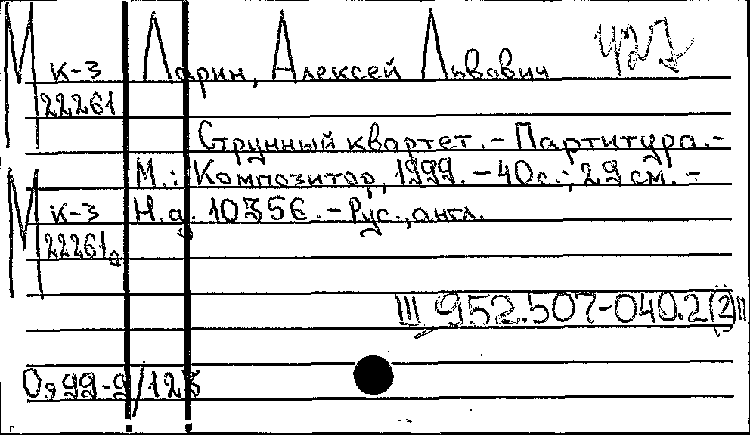 М К-3 Ларин, Алексей Львович 427
22261
Струнный квартет. - Партитура. -
М.: Композитор, 1999. - 40с.; 29 см. -
М К-3 Н.д. 10356. - Рус., англ.
22261а
III 952.507-040.2(2)
Оя99-9/123